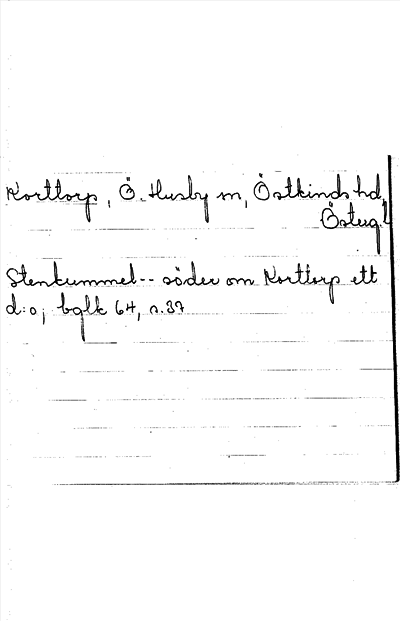 Korttorp, Ö. Husby sn, Östkinds hd,
Östug!
Stenkummel-- söder om Korttorp ett
d:o; bglk 64, s.37